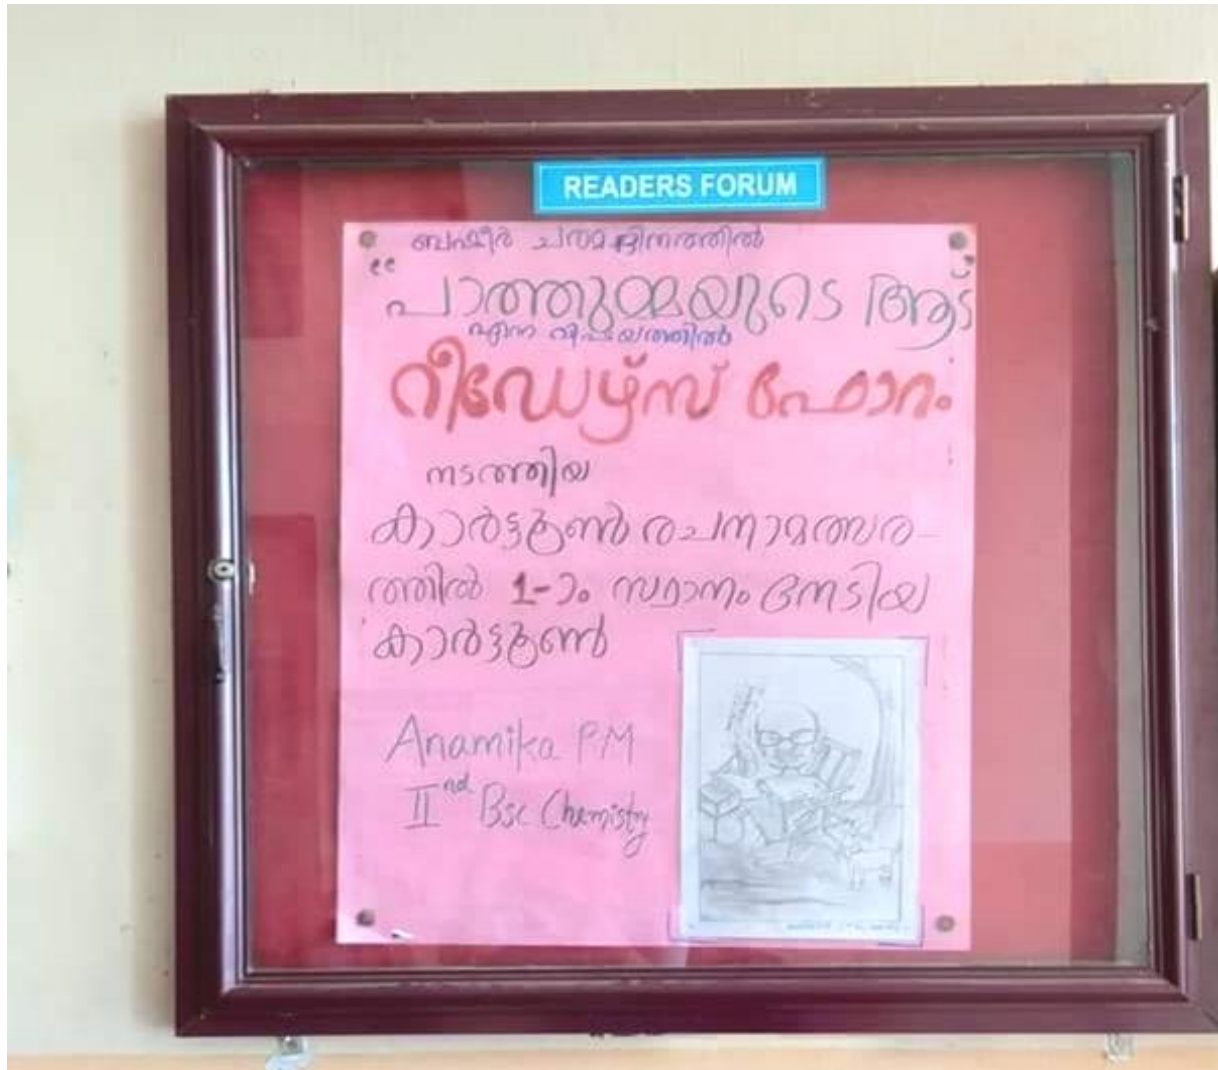 READERS FORUM
ബഷീർ ചരമദിനത്തിൽ
"പാത്തുമ്മയുടെ ആട്"
എന്ന വിഷയത്തിൽ
റീഡേഴ്സ് ഫോറം
നടത്തിയ
കാർട്ടൂൺ രചനാമത്സര-
ത്തിൽ 1-ാം സ്ഥാനം നേടിയ
കാർട്ടൂൺ
Anamika P.M
IInd Bsc Chemistry